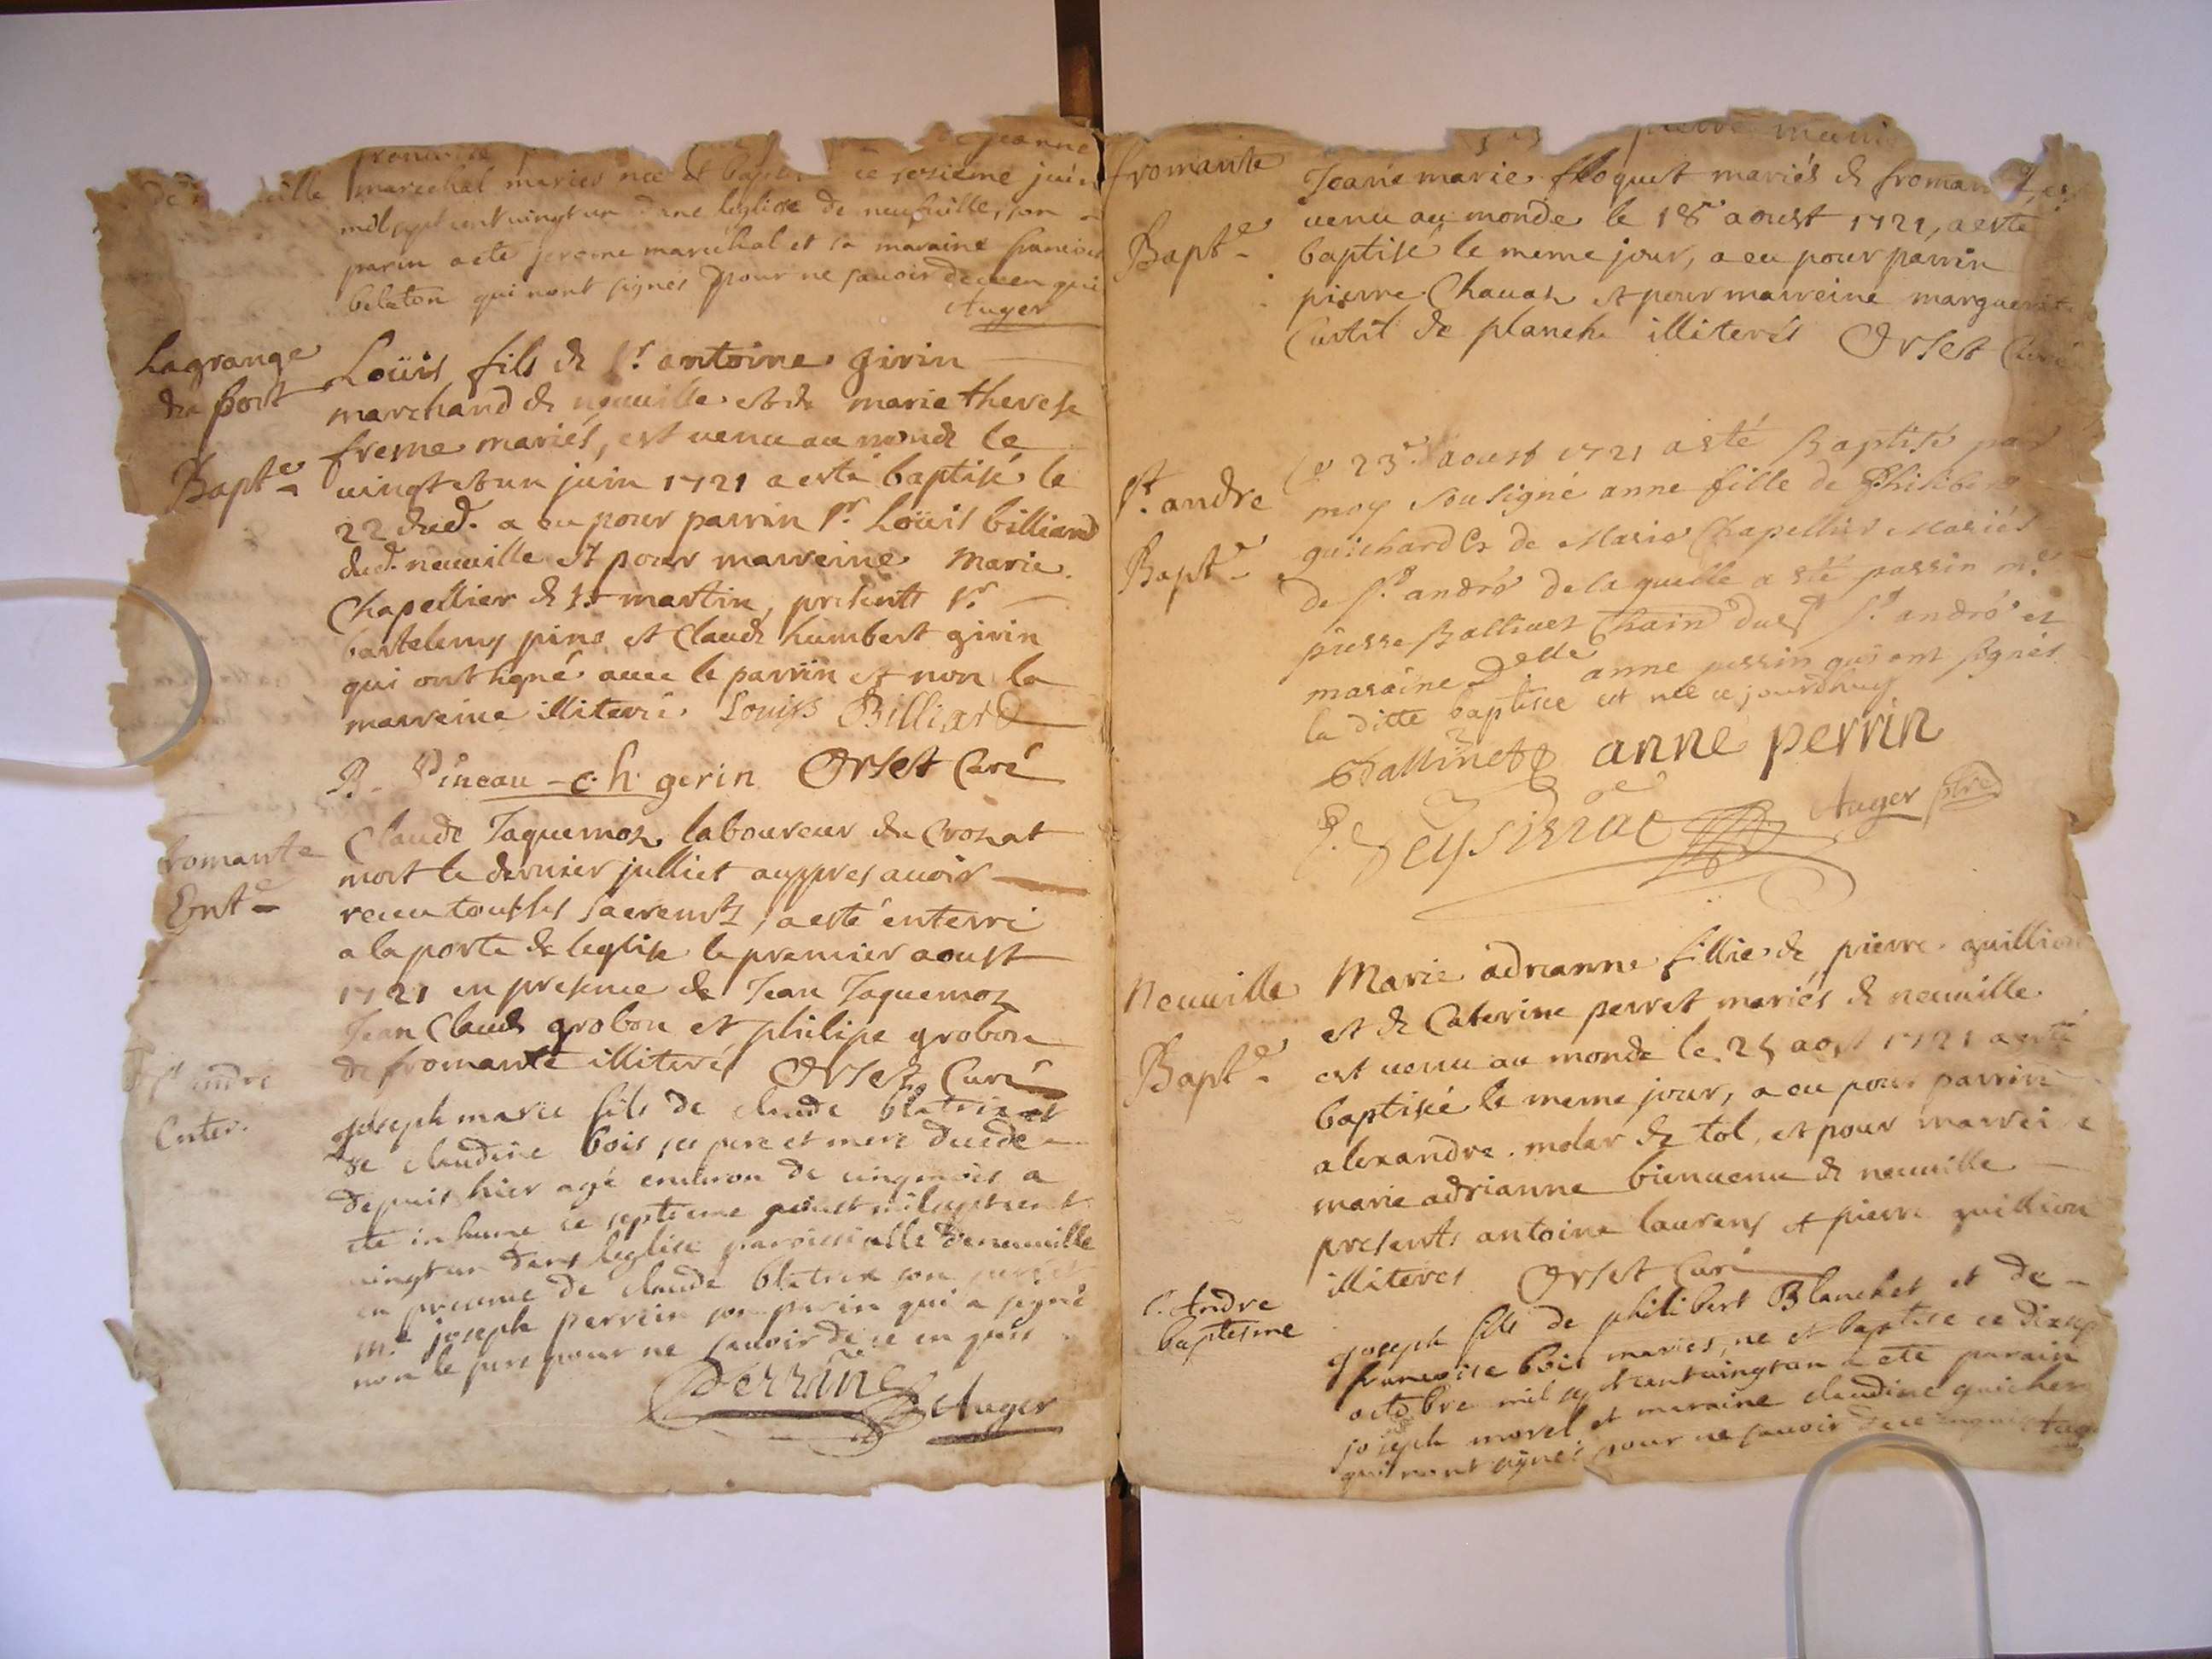 de jeanne
marechal maries nee et bapt ce sesieme juin
mil sept cent vingt un dans leglise de neufville, son
parin a ete jerome marechal et sa maraine francoise
belaton qui nont signes pour ne savoir de ce enquis
Auger
Lagrange
du port
Bapt.e
Loüis fils de Sr. antoine girin
marchand de neuville et de marie therese
fresne mariés, est venu au monde le
vingt et un juin 1721 a esté baptisé le
22 dud. a eu pour parrin Sr. Loüis billiard
dud. neuville et pour marreine Marie
Chapellier de St martin, presents Sr.
bartelemy pino et Claude humbert girin
qui ont signé avec le parrin et non la
marreine illiteré. Louis Billiard
B. Pineau - c. h. gerin Orset Curé
fromante
Ent.e
Claude Jaquemoz laboureur du Crozat
mort le dernier julliet auppres avoir
receu tous les sacremts, a esté enterré
a la porte de leglise le premier aoust
1721 en presence de Jean Jaquemoz
Jean Claude grobon et philipe grobon
de fromante illiteré Orset Curé
St andre
Enter.
Joseph marie fils de claude blatrix et
de claudine bois ses pere et mere decede
depuis hier agé environ de cinq mois a
ete inhume ce septieme aoust mil sept cent
vingt un dans leglise paroissialle de neuville
en presence de claude blatrix son pere et
mre joseph perrein son parin qui a signé
non le pere pour ne savoir de ce en quis
Perrine Auger
pierre
fromante
Bapt.e
Jeane marie floquet mariés de froman
venu au monde le 18e aoust 1721, a esté
baptisé le meme jour, a eu pour parrin
pierre Chavan et pour marreine marguerite
Curtil de planche illiterés Orset Curé
St. andre
Bapt.e
Le 23e. aoust 1721 a esté Baptisé par
moy sousigné anne fille de Philibert
guichard et de Marie Chapellier Mariés
de St. andré de laquelle a eté parrin mre
pierre Ballivet Chain dud St. andré et
maraine Delle anne perrin qui ont signés
la ditte baptisee est née ce jourdhuy
Ballivet anne perrin
Auger ptre
Neuville
Bapt.e
Marie adrianne fillie de pierre guillion
et de Caterine perret mariés de neuville
est venu au monde le 25 aost 1721 a esté
baptisée le meme jour, a eu pour parrin
alexandre molar de tol, et pour marreine
marie adrianne bienvenu de neuville
presents antoine laurens et pierre guillion
illiteres Orset Curé
S. Andre
baptesme
Joseph fils de philibert Blanchet et de
francoise bois maries, ne et baptise ce dixsept
octobre mil sept cent vingt un a ete parain
joseph morel et maraine claudine guicher
qui nont signes pour ne savoir de ce enquis Auger